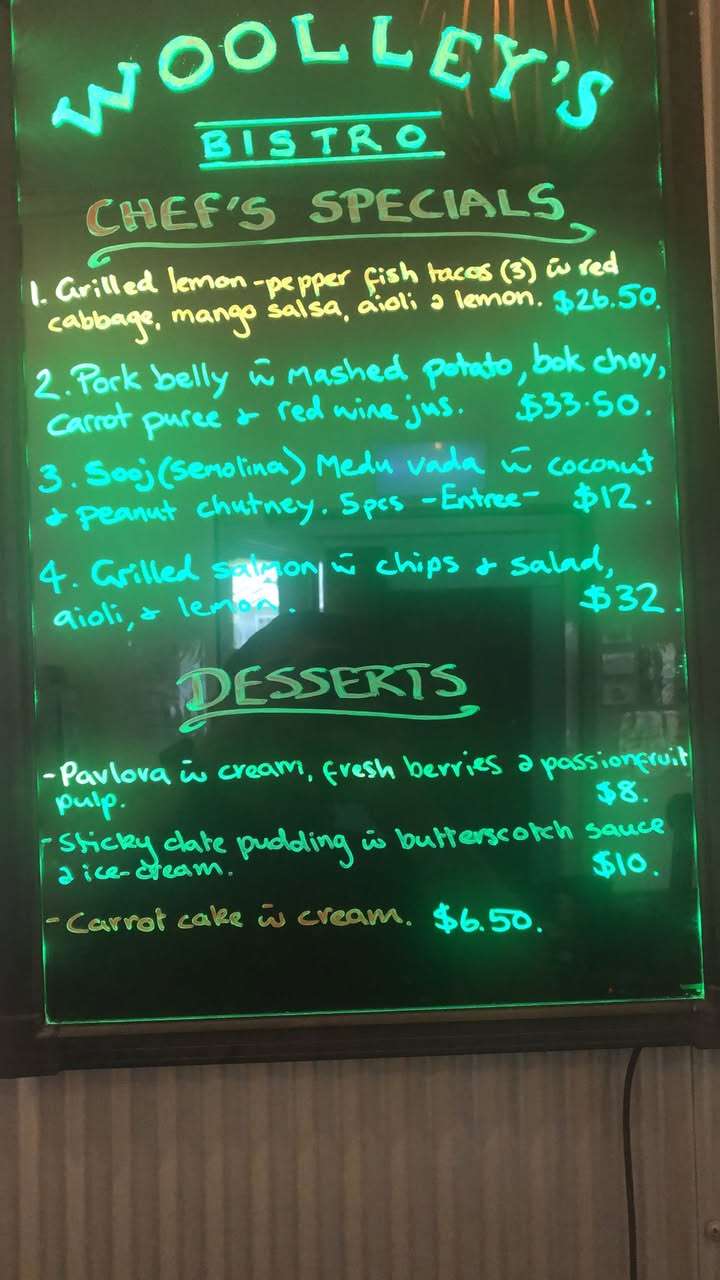 WOOLLEY'S
BISTRO
CHEF'S SPECIALS
1. Grilled lemon-pepper fish tacos (3) w̄ red
cabbage, mango salsa, aioli & lemon. $26.50.
2. Pork belly w̄ Mashed potato, bok choy,
Carrot puree & red wine jus. $33.50.
3. Sooj (Semolina) Medu vada w̄ coconut
& peanut chutney. 5pcs -Entree- $12.
4. Grilled salmon w̄ chips & salad,
aioli, & lemon. $32.
DESSERTS
-Pavlova w̄ cream, fresh berries & passionfruit
pulp. $8.
-Sticky date pudding w̄ butterscotch sauce
& ice-cream. $10.
-Carrot cake w̄ cream. $6.50.